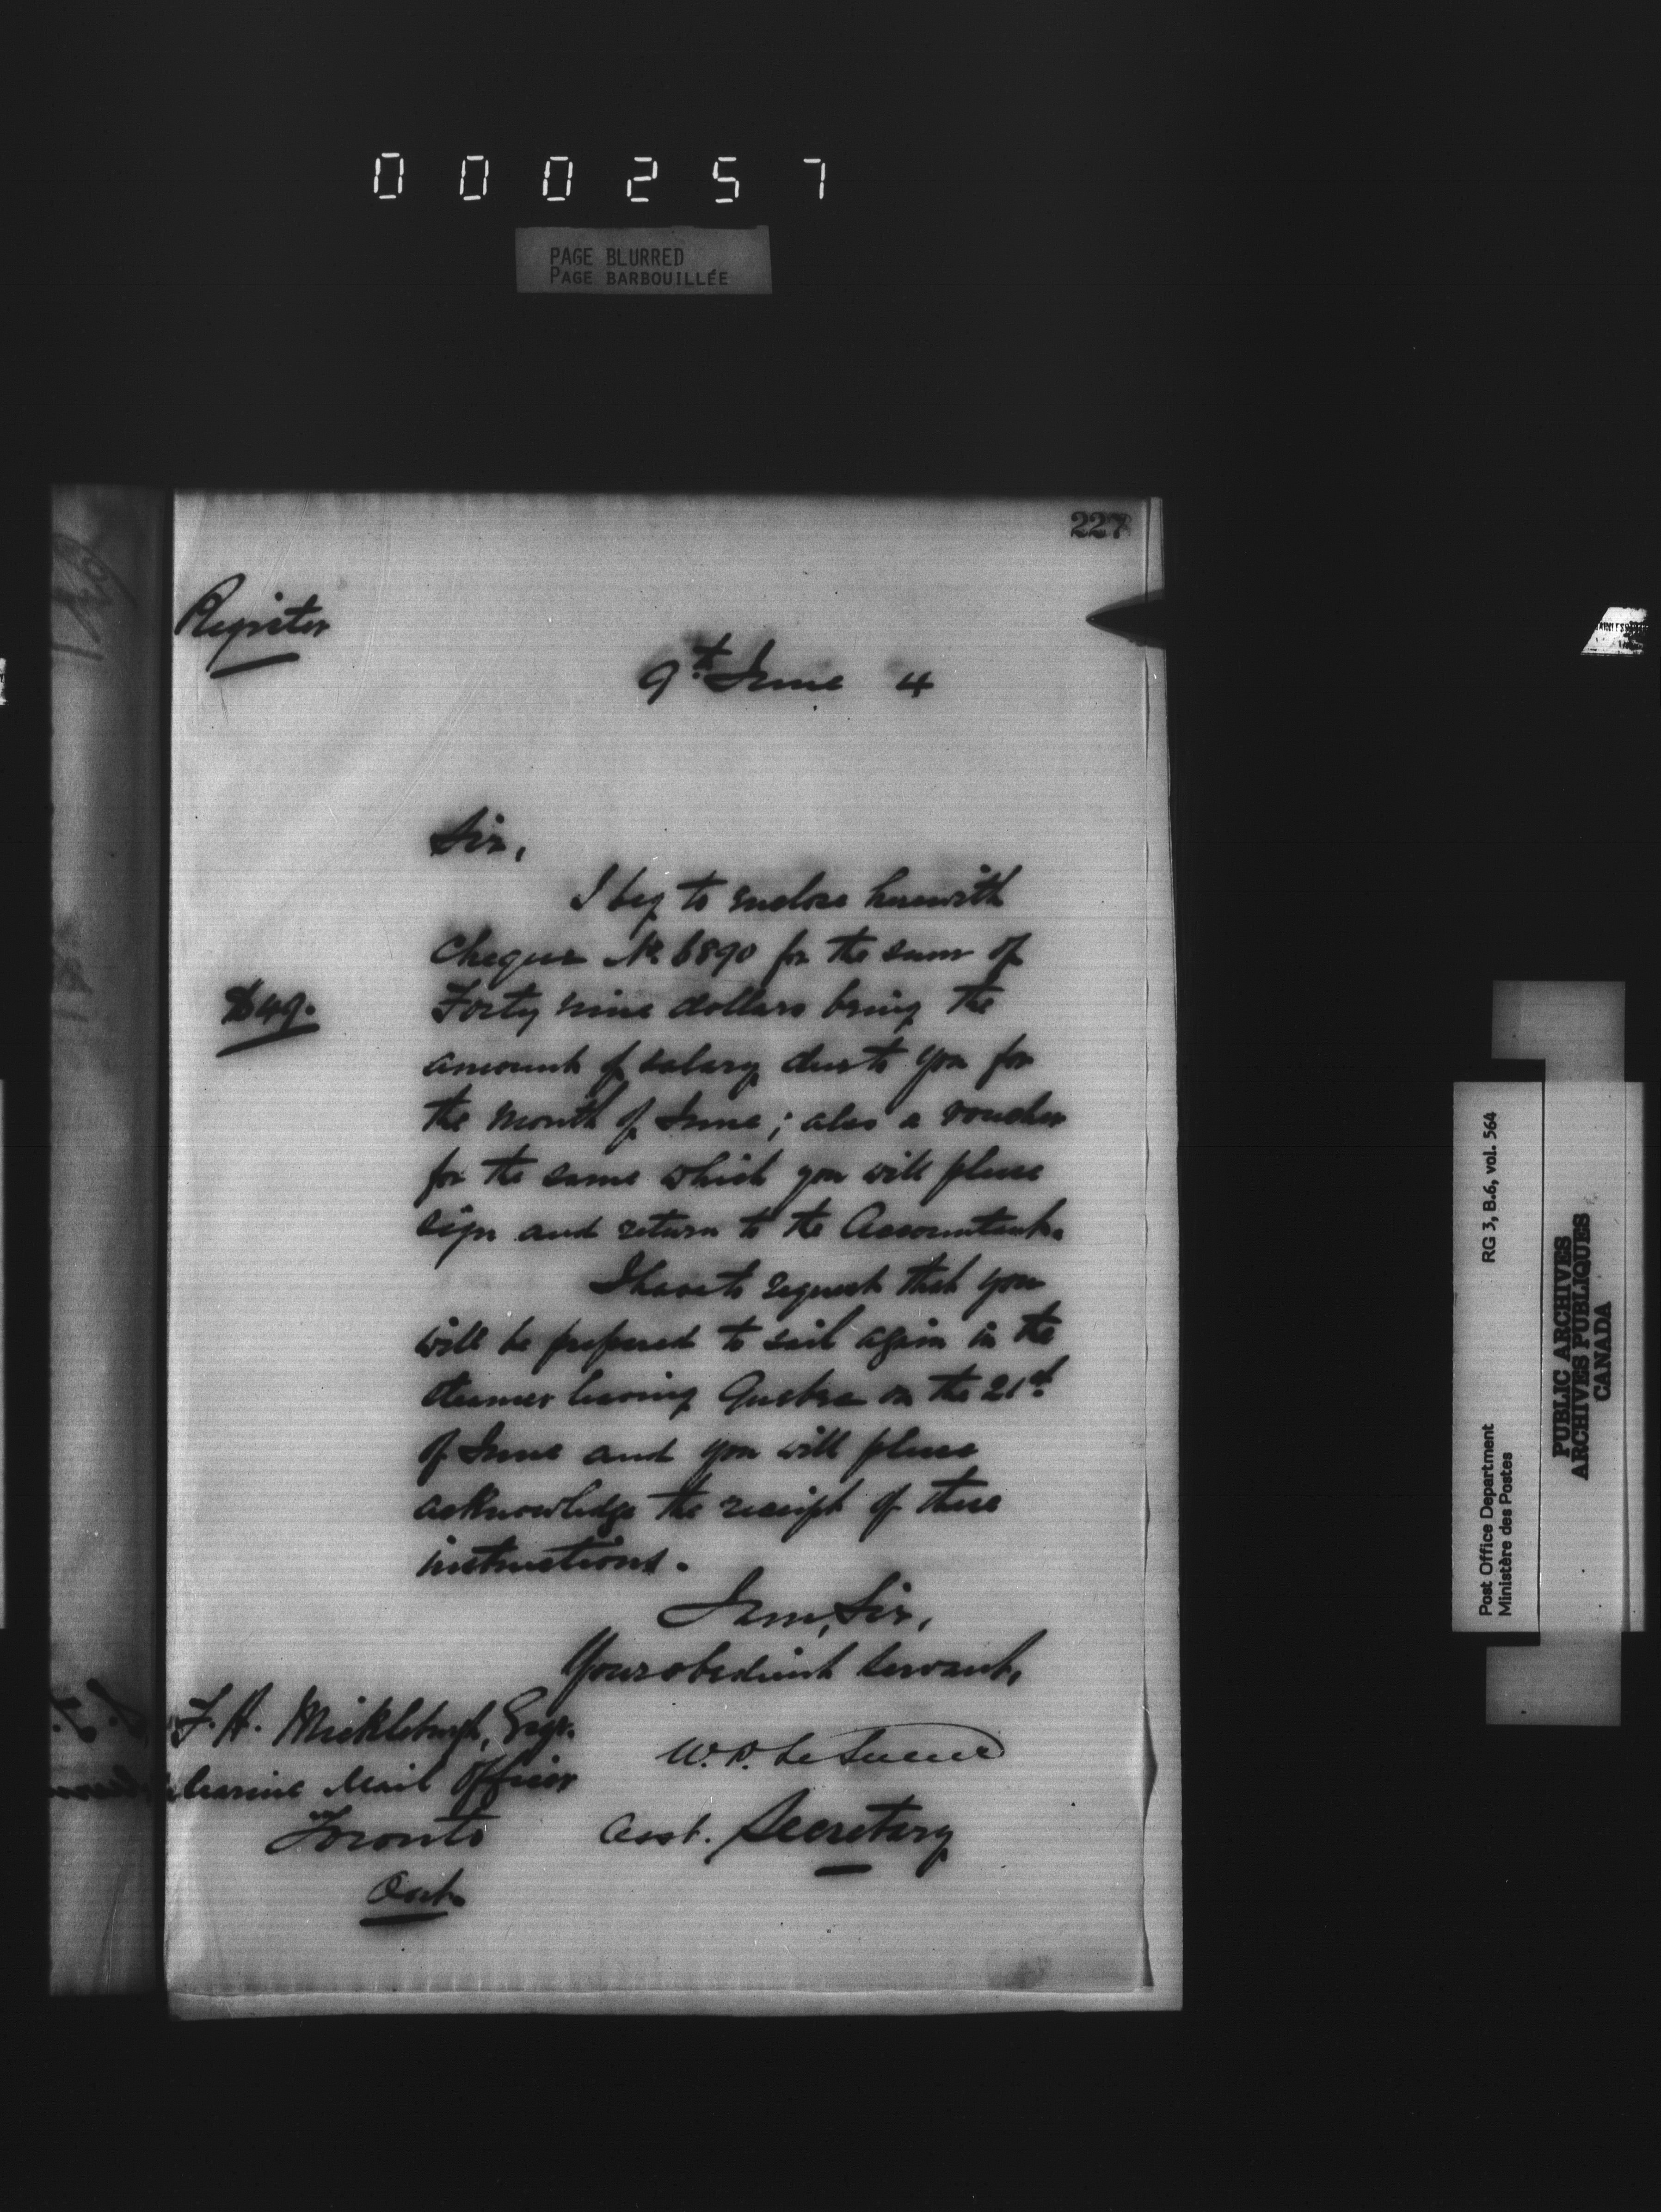 000257
PAGE BLURRED
PAGE BARBOUILLÉE
227
Register
9th June 4
Sir,
I beg to enclose herewith
Cheque No 6890 for the sum of
$49.
Forty nine dollars being the
amount of salary due to you for
the month of June; also a voucher
for the same which you will please
sign and return to the Accountant.
I have to request that you
will be prepared to sail again in the
steamer leaving Quebec on the 21st
of June and you will please
acknowledge the receipt of these
instructions.
I am, Sir,
Your obedient servant,
F. H. Mickleburgh, Esqr.
W. D. LeSueur
Marine Mail Officer
Toronto
Asst. Secretary
Ont.
RG 3, B.6, vol. 564
Post Office Department
Ministère des Postes
PUBLIC ARCHIVES
ARCHIVES PUBLIQUES
CANADA